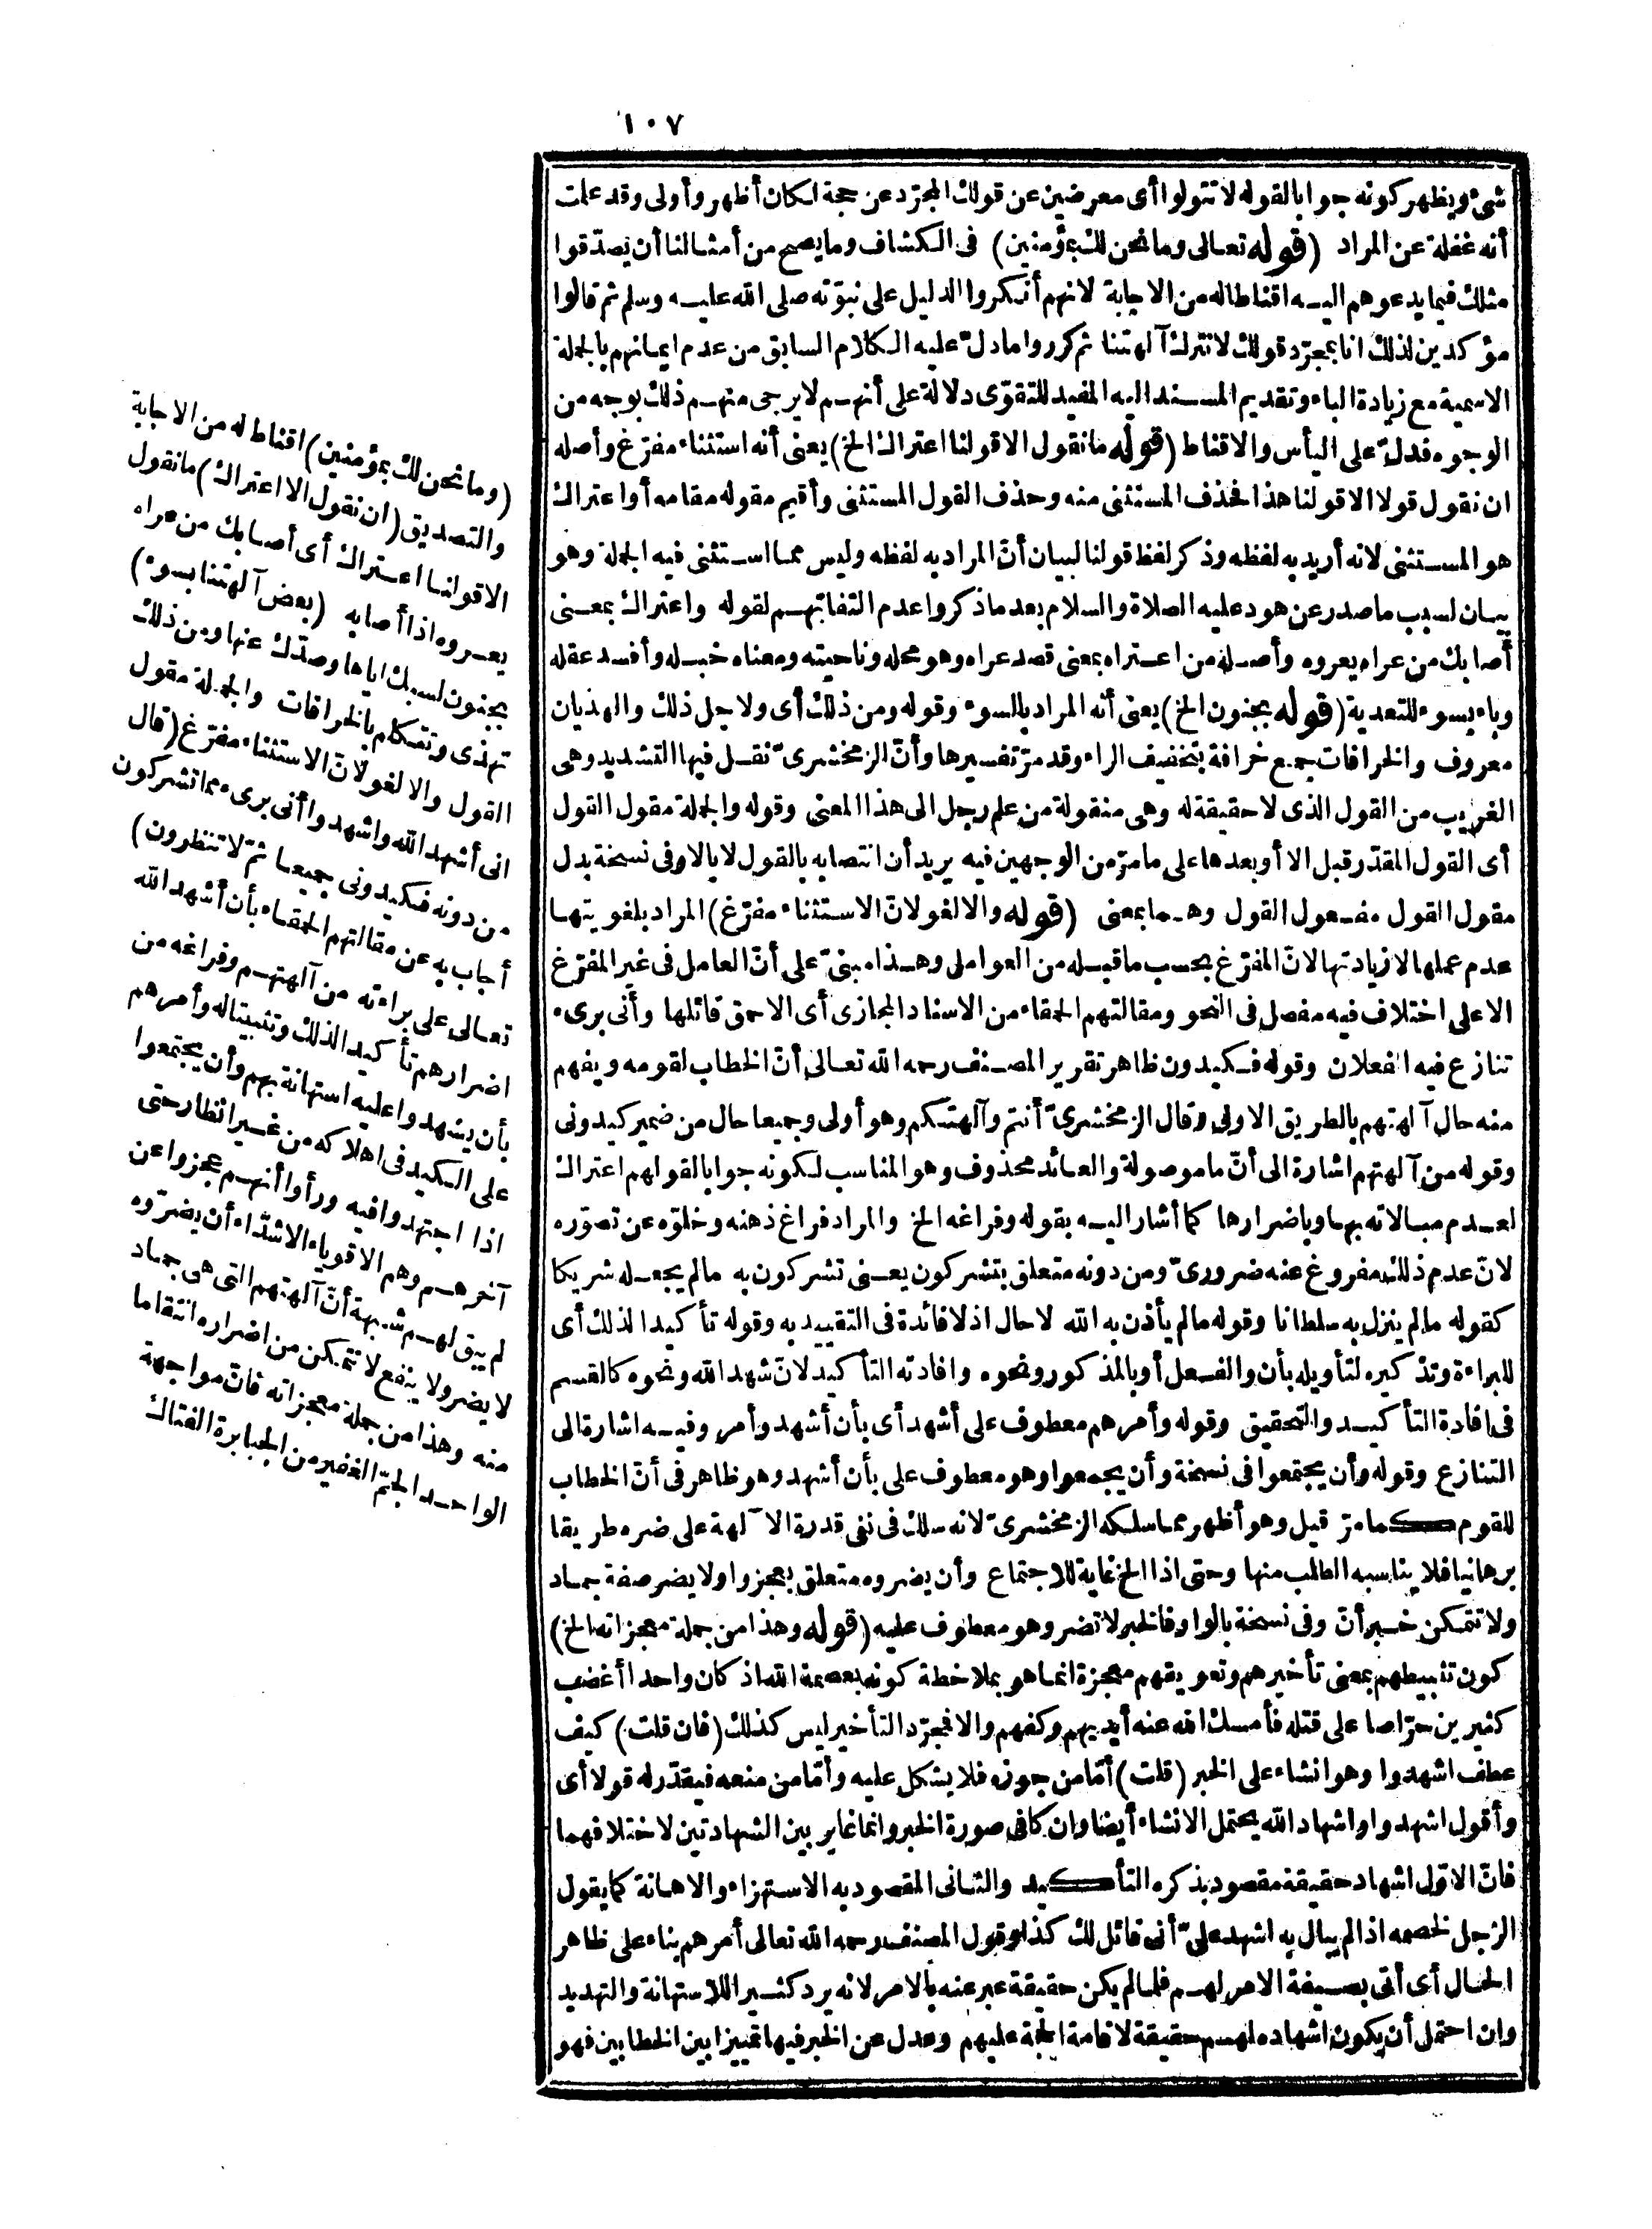 ١٠٧
شئ ويظهر كونه جوابا لقوله لا تتولوا أى معرضين عن قولك المجرّد عن حجة لكان أظهر وأولى وقد علمت
أنه غفلة عن المراد (قوله تعالى وما نحن لك بمؤمنين) فى الكشاف وما يصح من أمثالنا أن يصدّقوا
مثلك فيما يدعوهم اليه اقناطا له من الاجابة لانهم أنكروا الدليل على نبوّته صلى الله عليه وسلم ثم قالوا
مؤكدين لذلك انا بمجرّد قولك لا نترك آلهتنا ثم كرروا ما دلّ عليه الكلام السابق من عدم ايمانهم بالجملة
الاسمية مع زيادة الباء وتقديم المسند اليه المفيد للتقوّى دلالة على أنهم لا يرجى منهم ذلك بوجه من
الوجوه فدلّ على اليأس والاقناط (قوله ما نقول الا قولنا اعتراك الخ) يعنى أنه استثناء مفرّغ وأصله
ان نقول قولا الا قولنا هذا فحذف المستثنى منه وحذف القول المستثنى وأقيم مقوله مقامه أو اعتراك
هو المستثنى لانه أريد به لفظه وذكر لفظ قولنا لبيان أنّ المراد به لفظه وليس مما استثنى فيه الجملة وهو
بيان لسبب ما صدر عن هود عليه الصلاة والسلام بعد ما ذكروا عدم التفاتهم لقوله واعتراك بمعنى
أصابك من عراه يعروه وأصله من اعتراه بمعنى قصد عراه وهو محله وناحيته ومعناه خبله وأفسد عقله
وباء بسوء للتعدية (قوله بجنون الخ) يعنى أنه المراد بالسوء وقوله ومن ذلك أى ولاجل ذلك والهذيان
معروف والخرافات جمع خرافة بتخفيف الراء وقد مرّ تفسيرها وأنّ الزمخشرىّ نقل فيها التشديد وهى
الغريب من القول الذى لا حقيقة له وهى منقولة من علم رجل الى هذا المعنى وقوله والجملة مقول القول
أى القول المقدّر قبل الا أو بعدها على ما مرّ من الوجهين فيه يريد أن انتصابه بالقول لا بالا وفى نسخة بدل
مقول القول مفعول القول وهما بمعنى (قوله والا لغو لانّ الاستثناء مفرّغ) المراد بلغويتها
عدم عملها لا زيادتها لانّ المفرّغ بحسب ما قبله من العوامل وهذا مبنىّ على أنّ العامل فى غير المفرّغ
الا على اختلاف فيه مفصل فى النحو ومقالتهم الحمقاء من الاسناد المجازى أى الاحمق قائلها وأنى برىء
تنازع فيه الفعلان وقوله فكيدون ظاهر تقرير المصنف رحمه الله تعالى أنّ الخطاب لقومه ويفهم
منه حال آلهتهم بالطريق الاولى وقال الزمخشرىّ أنتم وآلهتكم وهو أولى وجميعا حال من ضمير كيدونى
وقوله من آلهتهم اشارة الى أنّ ما موصولة والعائد محذوف وهو المناسب لكونه جوابا لقولهم اعتراك
لعدم مبالاته بها وباضرارها كما أشار اليه بقوله وفراغه الخ والمراد فراغ ذهنه وخلوّه عن تصوّره
لانّ عدم ذلك مفروغ عنه ضرورىّ ومن دونه متعلق بتشركون يعنى تشركون به ما لم يجعله شريكا
كقوله ما لم ينزل به سلطانا وقوله ما لم يأذن به الله لا حال اذ لا فائدة فى التقييد به وقوله تأكيدا لذلك أى
للبراءة وتذكيره لتأويله بأن والفعل أو بالمذكور ونحوه وافادته التأكيد لانّ شهد الله ونحوه كالقسم
فى افادة التأكيد والتحقيق وقوله وأمرهم معطوف على أشهد أى بأن أشهد وأمر وفيه اشارة الى
التنازع وقوله وأن يجتمعوا فى نسخة وأن يجمعوا وهو معطوف على بأن أشهد وهو ظاهر فى أنّ الخطاب
للقوم كما مرّ قيل وهو أظهر مما سلكه الزمخشرىّ لانه سلك فى نفى قدرة الآلهة على ضره طريقا
برهانيا فلا يناسبه الطلب منها وحتى اذا الخ غاية للاجتماع وأن يضروه متعلق بعجزوا ولا يضر صفة جماد
ولا تتمكن خبر أنّ وفى نسخة بالواو فالخبر لا تضر وهو معطوف عليه (قوله وهذا من جملة معجزاته الخ)
كون تثبيطهم بمعنى تأخيرهم وتعويقهم معجزة انما هو بملاحظة كونه بعصمة الله اذ كان واحدا أغضب
كثيرين حرّاصا على قتله فأمسك الله عنه أيديهم وكفهم والا فمجرّد التأخير ليس كذلك (فان قلت) كيف
عطف اشهدوا وهو انشاء على الخبر (قلت) أمّا من جوزه فلا يشكل عليه وأمّا من منعه فيقدّر له قولا أى
وأقول اشهدوا واشهاد الله يحتمل الانشاء أيضا وان كا فى صورة الخبر وانما غاير بين الشهادتين لاختلافهما
فانّ الاوّل اشهاد حقيقة مقصود بذكره التأكيد والثانى المقصود به الاستهزاء والاهانة كما يقول
الرّجل لخصمه اذا لم يبال به اشهد علىّ أنى قائل لك كذا وقول المصنف رحمه الله تعالى أمرهم بناء على ظاهر
الحال أى أتى بصيغة الامر لهم فلما لم يكن حقيقة عبر عنه بالامر لانه يرد كثيرا للاستهانة والتهديد
وان احتمل أن يكون اشهاده لهم حقيقة لاقامة الحجة عليهم وعدل عن الخبر فيها تمييزا بين الخطابين فهو
(وما نحن لك بمؤمنين) اقناط له من الاجابة
والتصديق (ان نقول الا اعتراك) ما نقول
الا قولنا اعتراك أى أصابك من عراه
يعروه اذا أصابه (بعض آلهتنا بسوء)
بجنون لسبك اياها وصدّك عنها ومن ذلك
تهذى وتتكلم بالخرافات والجملة مقول
القول والا لغو لانّ الاستثناء مفرّغ (قال
انى أشهد الله واشهدوا أنى برىء مما تشركون
من دونه فكيدونى جميعا ثمّ لا تنظرون)
أجاب به عن مقالتهم الحمقاء بأن أشهد الله
تعالى على براءته من آلهتهم وفراغه من
اضرارهم تأكيدا لذلك وتثبيتا له وأمرهم
بأن يشهدوا عليه استهانة بهم وأن يجتمعوا
على الكيد فى اهلاكه من غير انظار حتى
اذا اجتهدوا فيه ورأوا أنهم عجزوا عن
آخرهم وهم الاقوياء الاشدّاء أن يضرّوه
لم يبق لهم شبهة أنّ آلهتهم التى هى جماد
لا يضر ولا ينفع لا تتمكن من اضراره انتقاما
منه وهذا من جملة معجزاته فانّ مواجهة
الواحد الجمّ الغفير من الجبابرة الفتاك